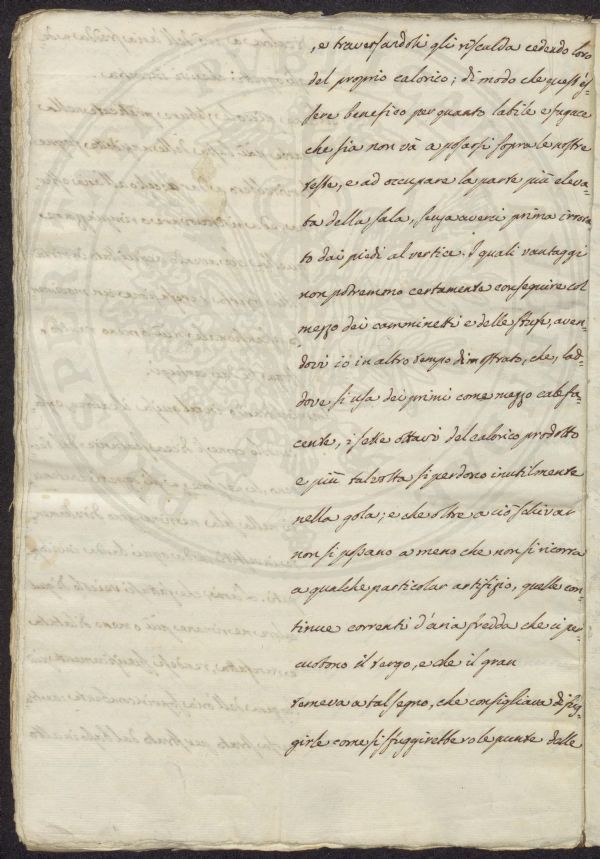 , e traversandoli gli riscalda cedendo loro
del proprio calorico; di modo che quest'es-
sere benefico per quanto labile e fugace
che sia non và a posarsi sopra le nostre
teste, e ad occupare la parte più eleva-
ta della sala, senza averci prima irrora-
to dai piedi al vertice. I quali vantaggi
non potremmo certamente conseguire col
mezzo dei camminetti e delle stufe, aven-
dovi io in altro tempo dimostrato, che, lad-
dove si usa dei primi come mezzo calefa-
cente, i sette ottavi del calorico prodotto
e più talvolta si perdono inutilmente
nella gola; e che oltre a ciò schivar
non si possano a meno che non si ricorra
a qualche particolar artifizio, quelle con-
tinue correnti d'aria fredda che ci per-
cuotono il tergo, e che il gran
temeva a tal segno, che consigliava di fug-
girle come si fuggirebbero le punte delle